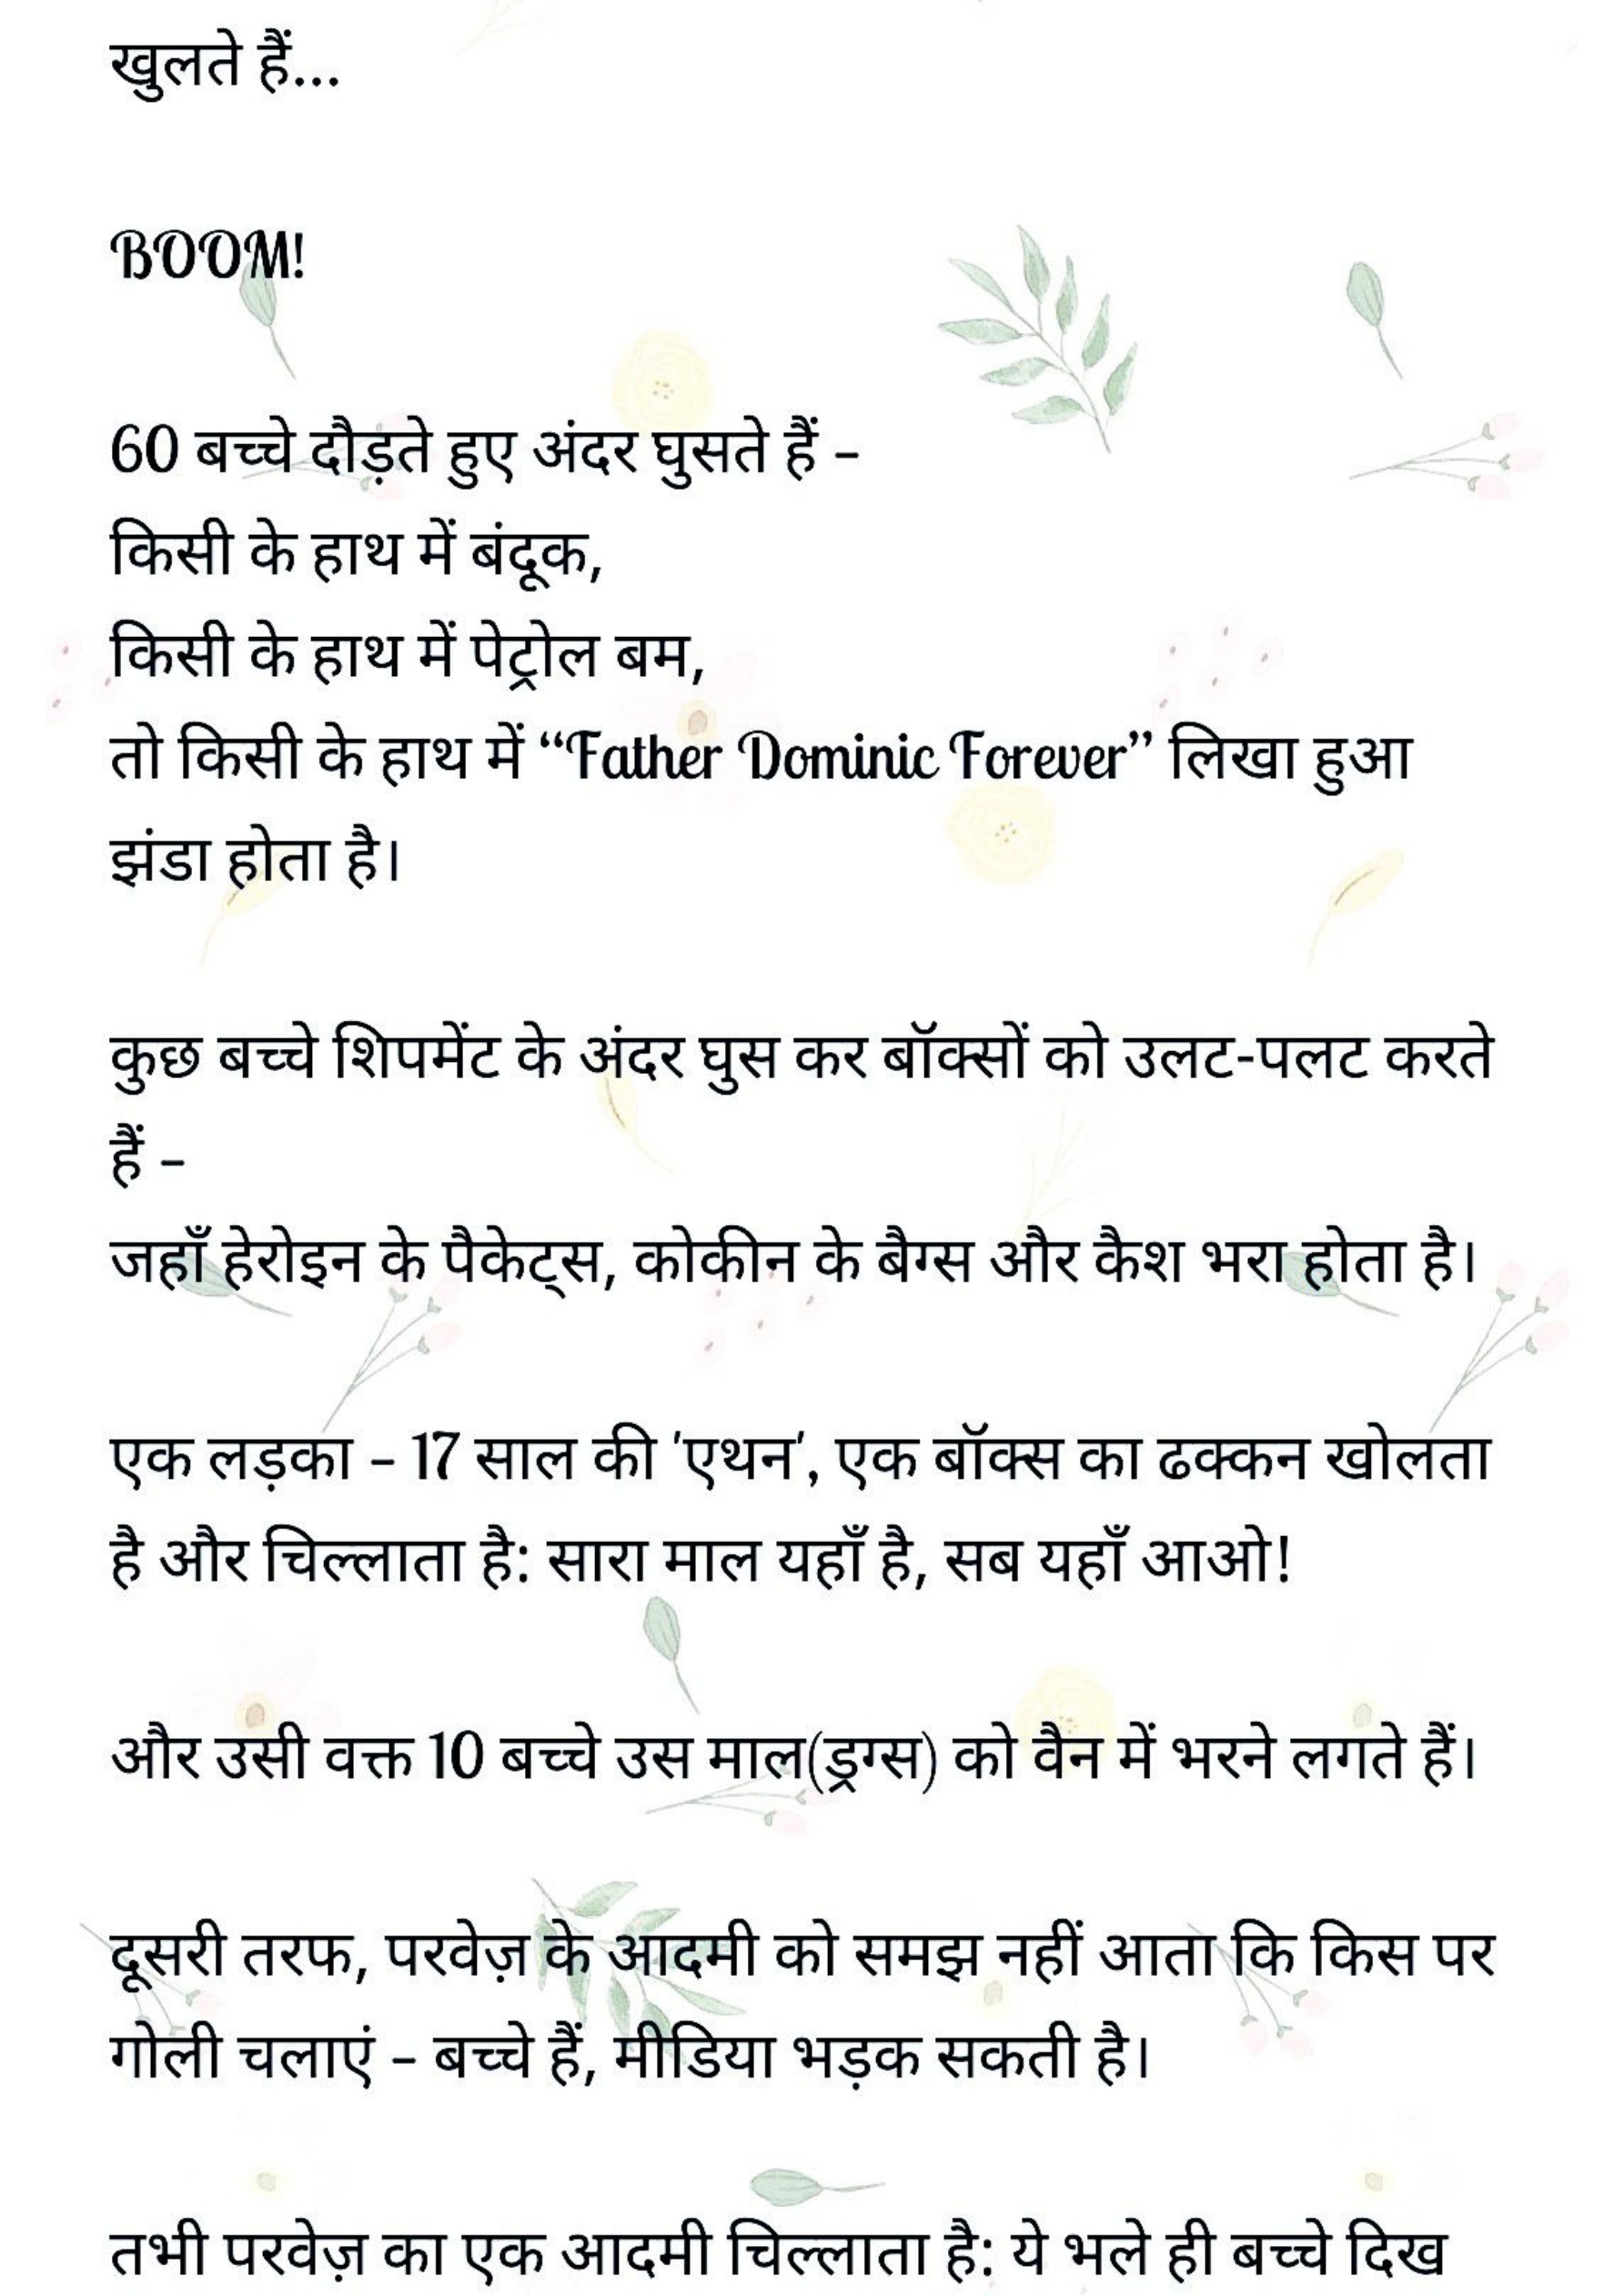 खुलते हैं...
BOOM!
60 बच्चे दौड़ते हुए अंदर घुसते हैं –
किसी के हाथ में बंदूक,
किसी के हाथ में पेट्रोल बम,
तो किसी के हाथ में “Father Dominic Forever” लिखा हुआ
झंडा होता है।
कुछ बच्चे शिपमेंट के अंदर घुस कर बॉक्सों को उलट-पलट करते
हैं –
जहाँ हेरोइन के पैकेट्स, कोकीन के बैग्स और कैश भरा होता है।
एक लड़का – 17 साल की 'एथन', एक बॉक्स का ढक्कन खोलता
है और चिल्लाता है: सारा माल यहाँ है, सब यहाँ आओ!
और उसी वक्त 10 बच्चे उस माल(ड्रग्स) को वैन में भरने लगते हैं।
दूसरी तरफ, परवेज़ के आदमी को समझ नहीं आता कि किस पर
गोली चलाएं – बच्चे हैं, मीडिया भड़क सकती है।
तभी परवेज़ का एक आदमी चिल्लाता है: ये भले ही बच्चे दिख